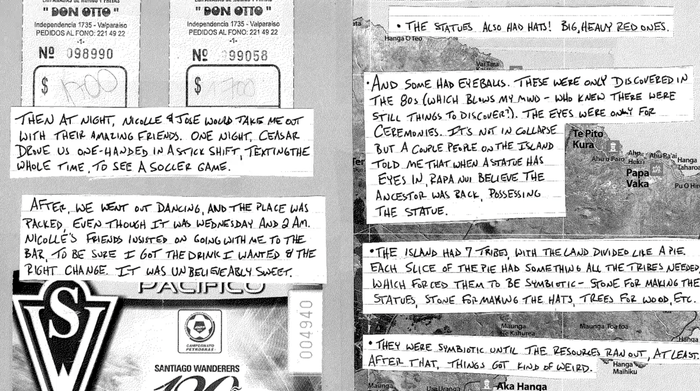 "DON OTTO"
Independencia 1735 - Valparaiso
PEDIDOS AL FONO: 221 49 22
-1-
Nº 098990
$ 1700
"DON OTTO"
Independencia 1735 - Valparaiso
PEDIDOS AL FONO: 221 49 22
-1-
Nº 099058
$ 1700
THEN AT NIGHT, NICOLLE & JOSE WOULD TAKE ME OUT
WITH THEIR AMAZING FRIENDS. ONE NIGHT, CEASAR
DROVE US ONE-HANDED IN A STICK SHIFT, TEXTING THE
WHOLE TIME, TO SEE A SOCCER GAME.
AFTER, WE WENT OUT DANCING, AND THE PLACE WAS
PACKED, EVEN THOUGH IT WAS WEDNESDAY AND 2 AM.
NICOLLE'S FRIENDS INSISTED ON GOING WITH ME TO THE
BAR, TO BE SURE I GOT THE DRINK I WANTED & THE
RIGHT CHANGE. IT WAS UNBELIEVABLY SWEET.
PACIFICO
SW
CAMPEONATO
PETROBRAS
SANTIAGO WANDERERS
004940
• THE STATUES ALSO HAD HATS! BIG, HEAVY RED ONES.
Hanga O Teo
• AND SOME HAD EYEBALLS. THESE WERE ONLY DISCOVERED IN
THE 80s (WHICH BLOWS MY MIND - WHO KNEW THERE WERE
STILL THINGS TO DISCOVER?). THE EYES WERE ONLY FOR
CEREMONIES. IT'S NOT IN COLLAPSE
BUT A COUPLE PEOPLE ON THE ISLAND
TOLD ME THAT WHEN A STATUE HAS
EYES IN, RAPA NUI BELIEVE THE
ANCESTOR WAS BACK, POSSESSING
THE STATUE.
Te Pito
Kura
Papa
Vaka
Hanga
Taharoa
• THE ISLAND HAD 7 TRIBES, WITH THE LAND DIVIDED LIKE A PIE.
EACH SLICE OF THE PIE HAD SOMETHING ALL THE TRIBES NEEDED
WHICH FORCED THEM TO BE SYMBIOTIC - STONE FOR MAKING THE
STATUES, STONE FOR MAKING THE HATS, TREES FOR WOOD, ETC.
Maunga
Maunga Toa toa
• THEY WERE SYMBIOTIC UNTIL THE RESOURCES RAN OUT, AT LEAST.
AFTER THAT, THINGS GOT KIND OF WEIRD.
Hanga
Maihiku
Aka Hanga